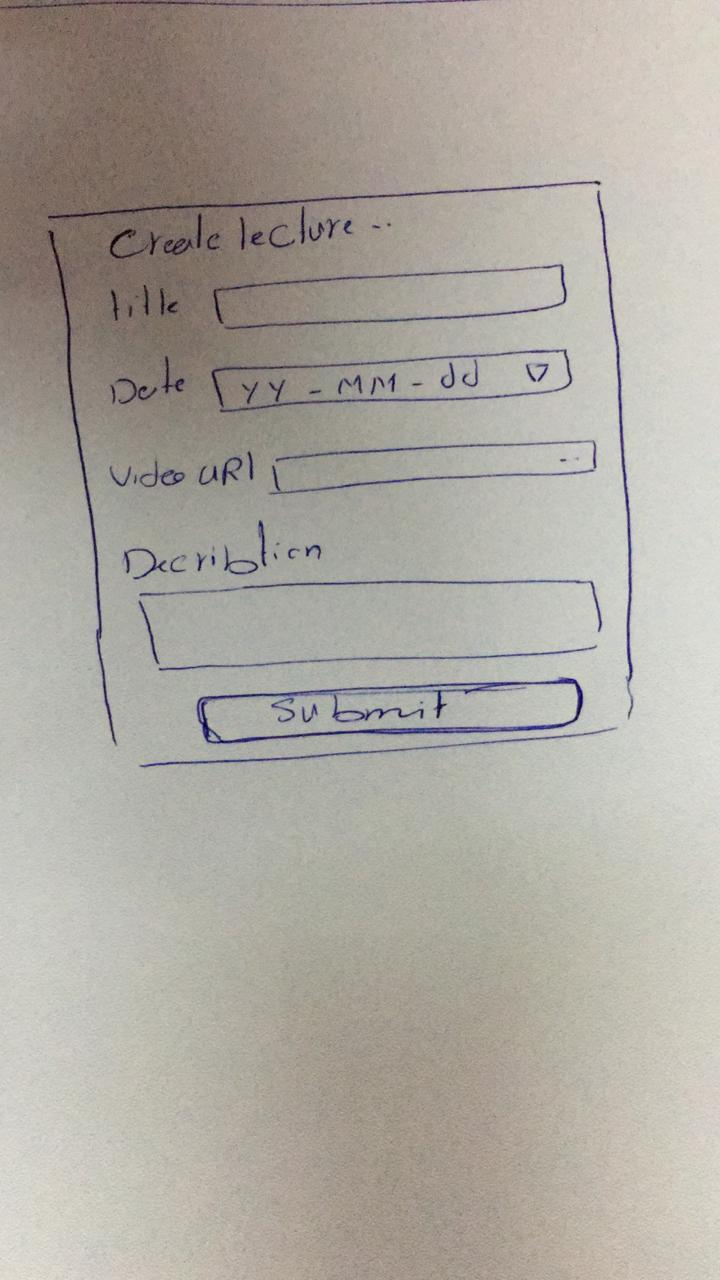 Create lecture ..
title
Date YY - MM - dd
Video URl ..
Decribtion
Submit